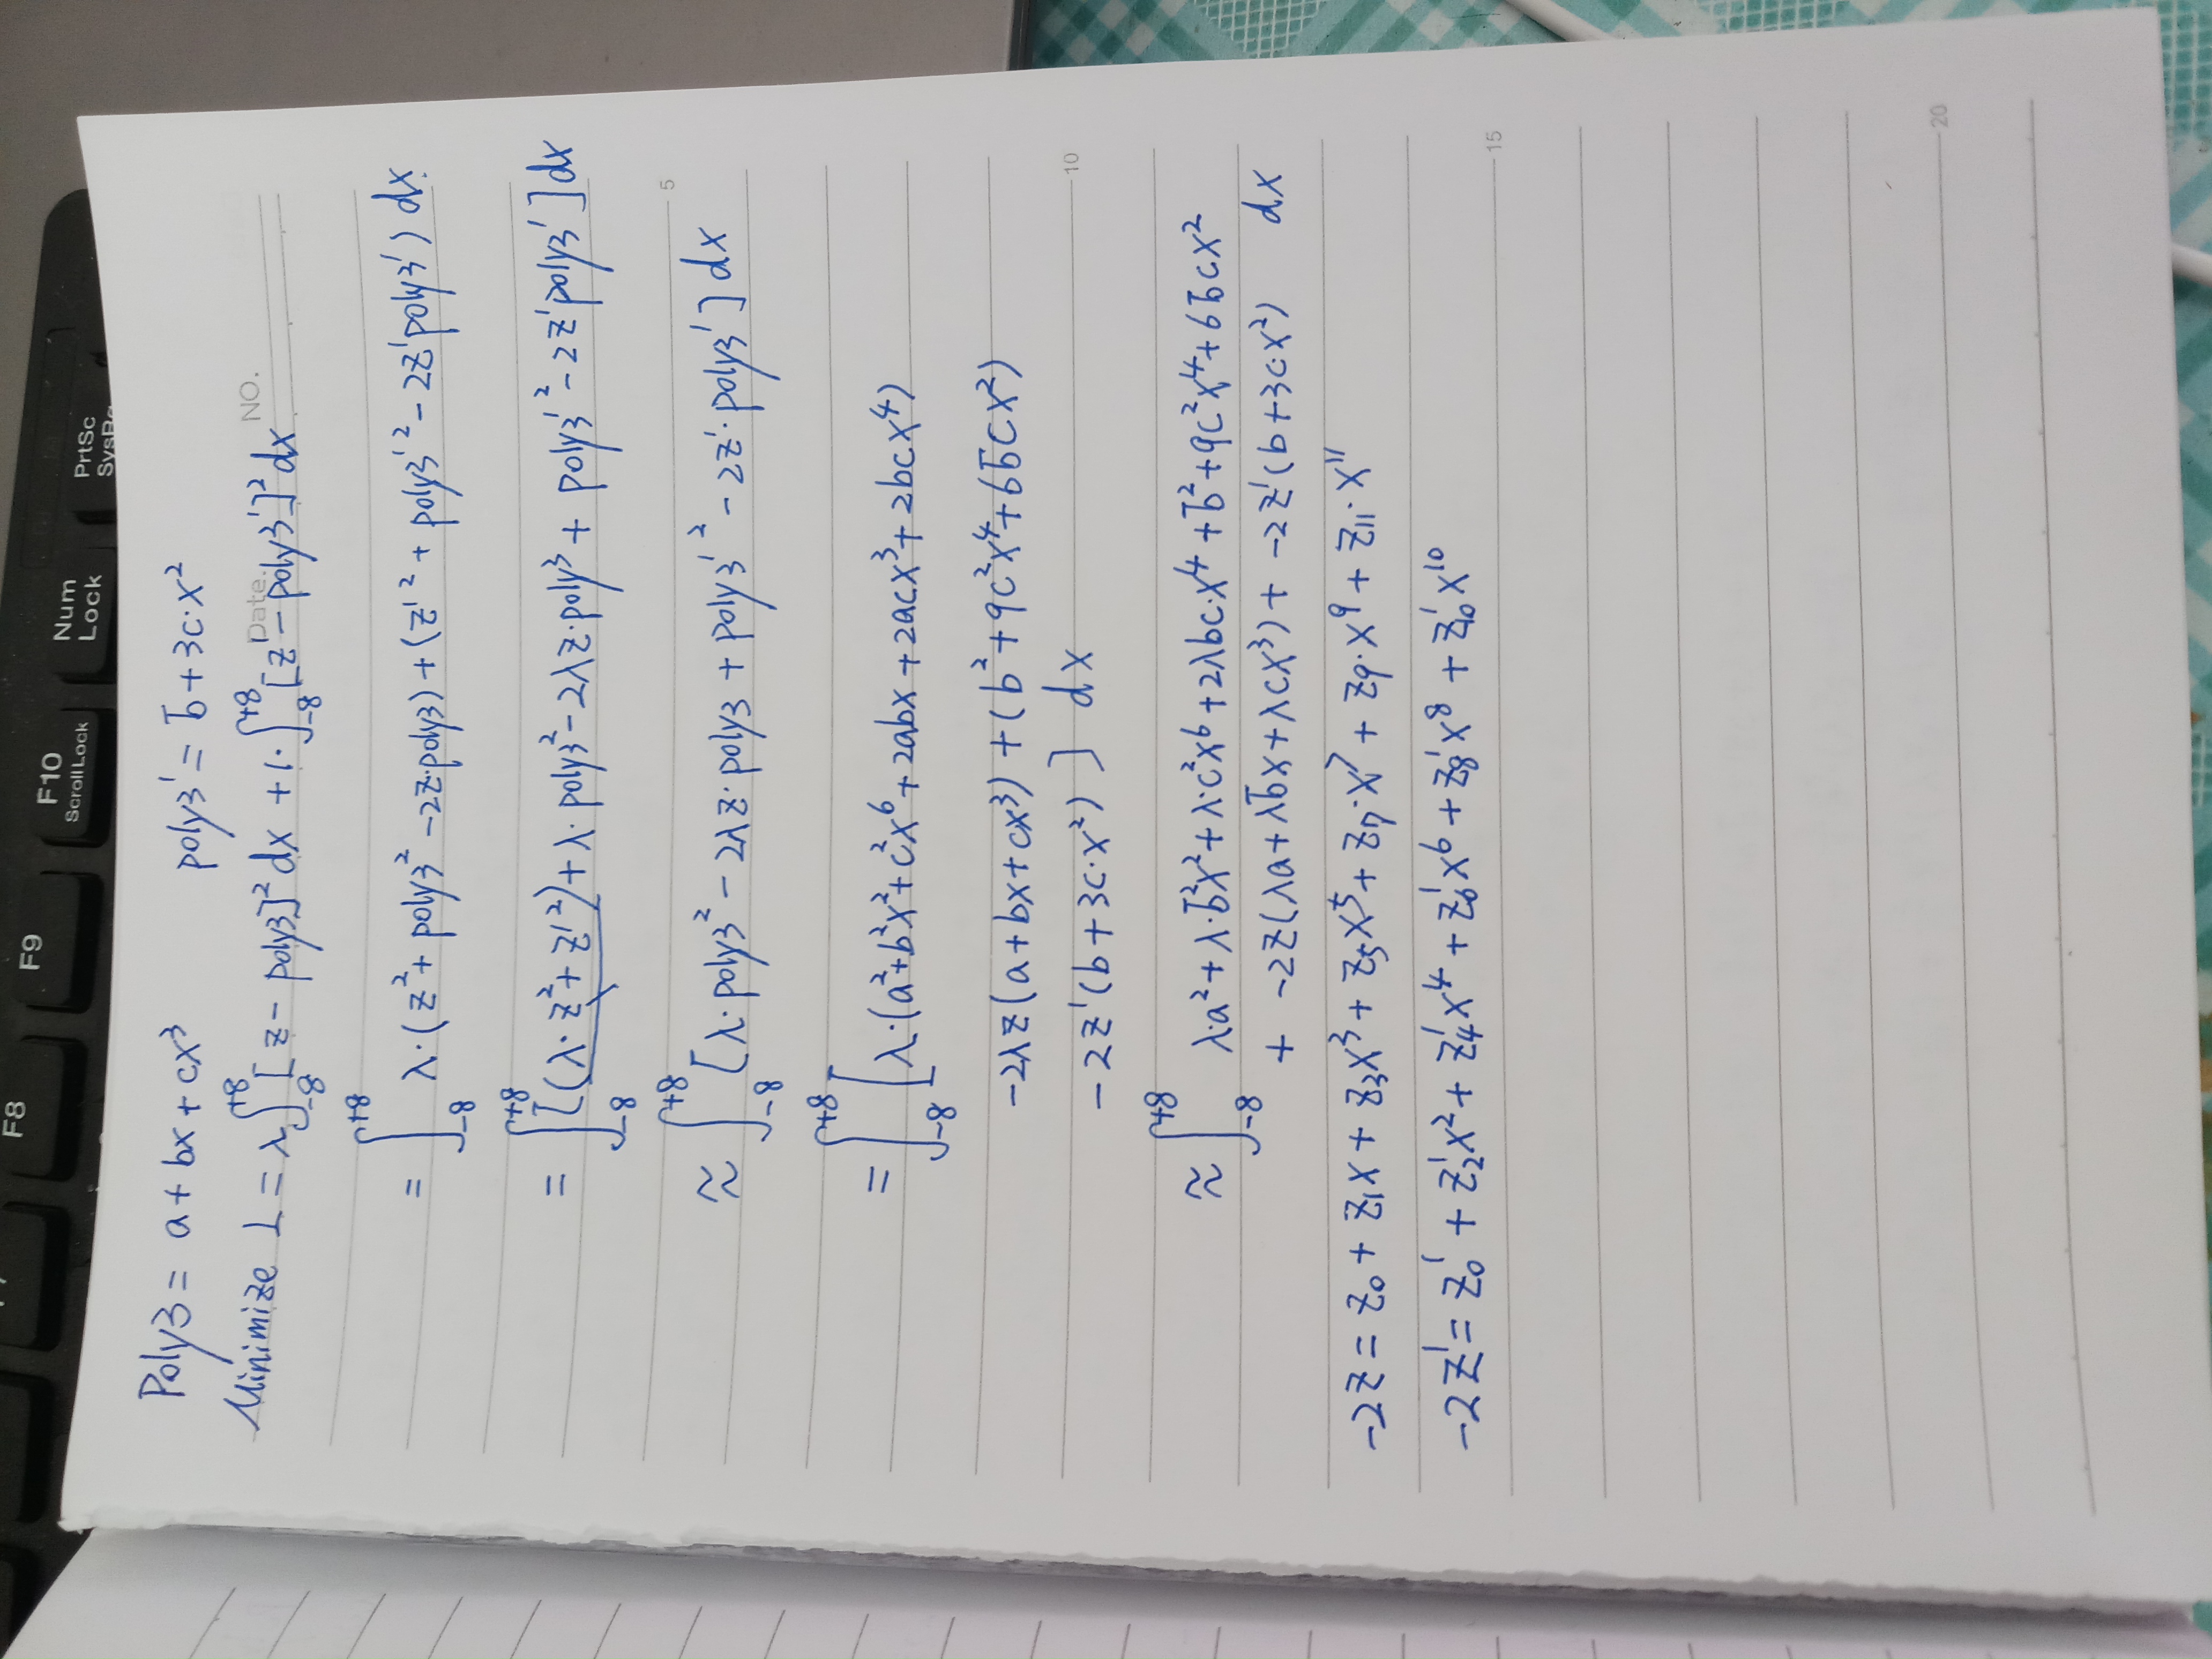 F8
F9
F10
Scroll Lock
Num
Lock
PrtSc
Poly3 = a + bx + cx³ poly3' = b + 3c·x²
Date. NO.
Minimize L = λ∫₋₈⁺⁸ [z - poly3]² dx + 1·∫₋₈⁺⁸ [z' - poly3']² dx
= ∫₋₈⁺⁸ λ·(z² + poly3² - 2z·poly3) + (z'² + poly3'² - 2z'poly3') dx
= ∫₋₈⁺⁸ [(λ·z² + z'²) + λ·poly3² - 2λz·poly3 + poly3'² - 2z'poly3'] dx
5
≈ ∫₋₈⁺⁸ [λ·poly3² - 2λz·poly3 + poly3'² - 2z'·poly3'] dx
= ∫₋₈⁺⁸ [λ·(a² + b²x² + c²x⁶ + 2abx + 2acx³ + 2bcx⁴)
-2λz(a + bx + cx³) + (b² + 9c²x⁴ + 6bcx²)
- 2z'(b + 3c·x²) ] dx
10
≈ ∫₋₈⁺⁸ λ·a² + λ·b²x² + λ·c²x⁶ + 2λbc·x⁴ + b² + 9c²x⁴ + 6bcx²
+ -2z(λa + λbx + λcx³) + -2z'(b + 3cx²) dx
-2z = z₀ + z₁x + z₃x³ + z₅x⁵ + z₇·x⁷ + z₉·x⁹ + z₁₁·x¹¹
-2z' = z₀' + z₂'x² + z₄'x⁴ + z₆'x⁶ + z₈'x⁸ + z₁₀'x¹⁰
15
20